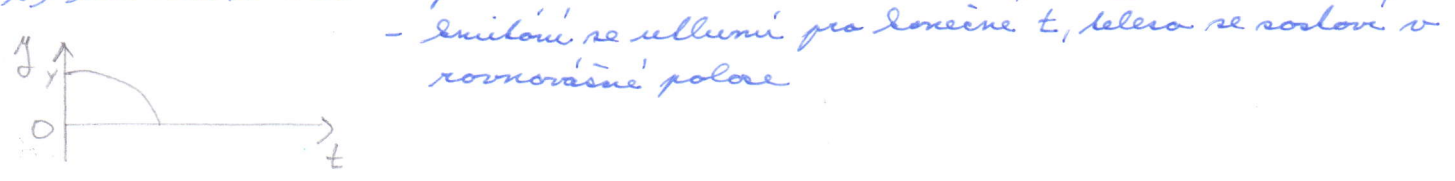 - kmitání se utlumí pro konečné t, těleso se zastaví v
rovnovážné poloze
y
Y
0
t